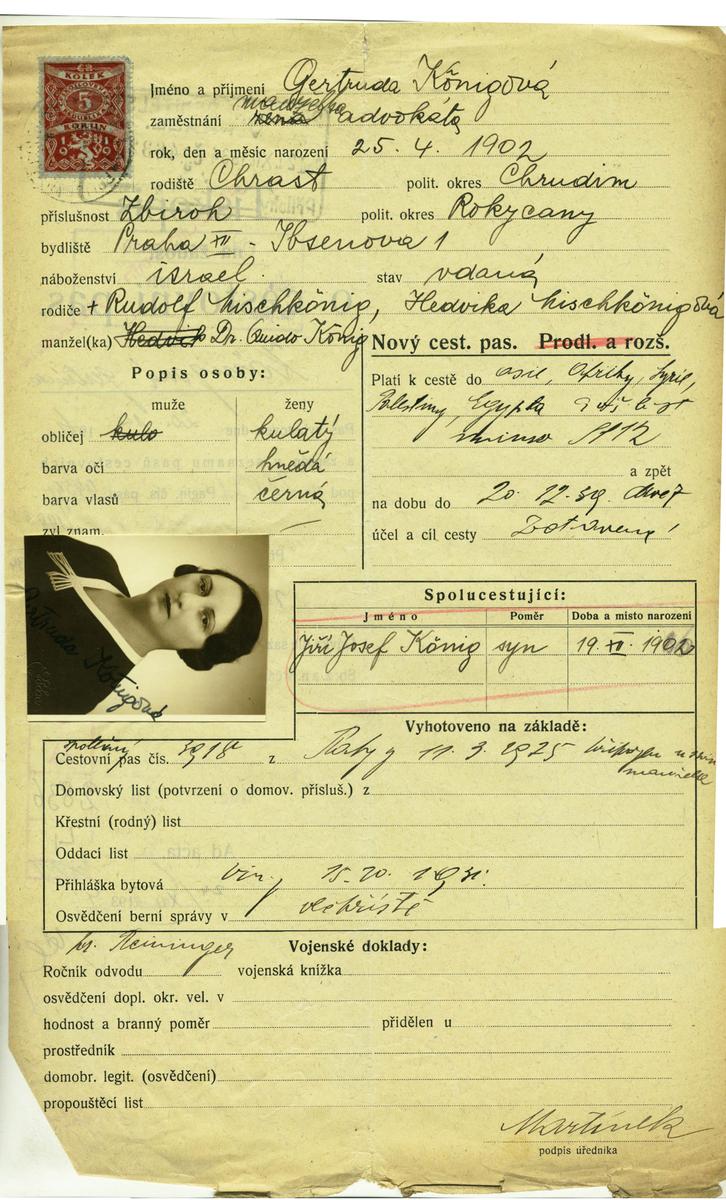 KOLEK
5
KORUN
1919
Jméno a příjmení Gertruda Königová
zaměstnání manželka advokáta
rok, den a měsíc narození 25. 4. 1902
rodiště Chrast polit. okres Chrudim
příslušnost Zbiroh polit. okres Rokycany
bydliště Praha XII - Ibsenova 1
náboženství israel. stav vdaná
rodiče + Rudolf Mischkönig, Hedvika Mischkönigová
manžel(ka) Dr. Guido König
Nový cest. pas. Prodl. a rozš.
Popis osoby:
muže ženy
obličej kulatý
barva očí hnědá
barva vlasů černá
zvl znam.
Platí k cestě do Asie, Afriky, Syrie,
Palestiny, Egypta
mimo
a zpět
na dobu do 20. 12.
účel a cíl cesty Zotavení
Gertruda Königová
Spolucestující:
Jméno Poměr Doba a místo narození
Jiří Josef König syn 19. XII.
Vyhotoveno na základě:
Cestovní pas čís. z 11. 3. 1925
Domovský list (potvrzení o domov. přísluš.) z
Křestní (rodný) list
Oddací list
Přihláška bytová
Osvědčení berní správy v
Vojenské doklady:
Ročník odvodu vojenská knížka
osvědčení dopl. okr. vel. v
hodnost a branný poměr přidělen u
prostředník
domobr. legit. (osvědčení)
propouštěcí list
Martínek
podpis úředníka